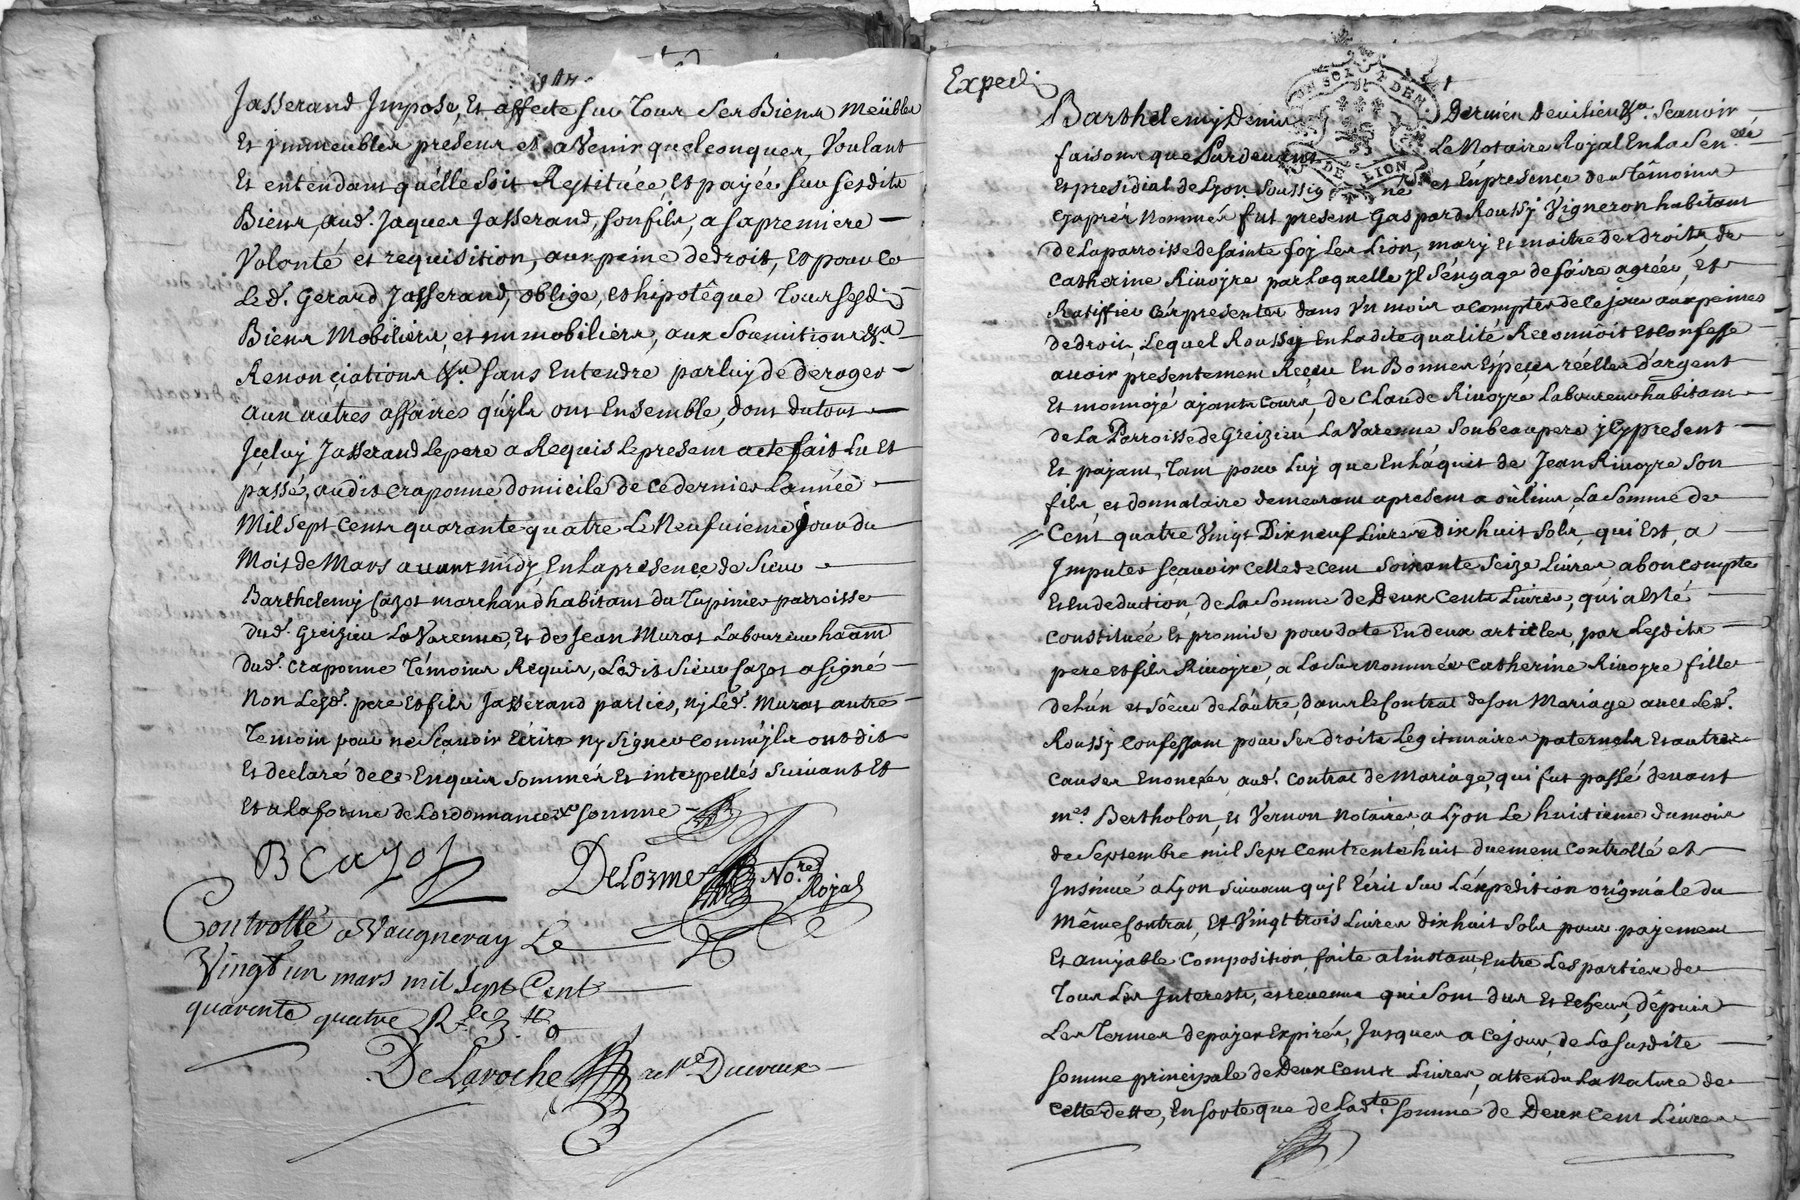 Jasserand Impose, Et affecte sur Tous Ses Biens Meubles
Et jmmeubles presens et a Venir quelconques, Voulant
Et entendant quélle soit Restituée et payée sur sesdits
Biens, aud. Jaques Jasserand, son fils, a sa premiere
Volonté et requisition, aux peine de droit, Et pour ce
Led. Gerard Jasserand, oblige, et hipotêque Tous sesd
Biens Mobiliers, et immobiliers, aux Soumitions &a.
Renonciations &a sans Entendre par luy dé déroger
aux autres affaires qu'jls ont Ensemble, dont du tout
Jceluy Jasserand Le pere a Requis Le present acte fait Lu Et
passé, audit craponne domicile de ce dernier L'année
Mil sept cents quarante quatre Le Neufvieme jour du
Mois de Mars avant midy, En la presence de sieur
Barthelemy Cazot marchand habitant du Tupinier parroisse
dud. Greizieu La Varenne, Et de Jean Murat Laboureur ha͠ant
dud. craponne Témoins Requis, Ledit sieur Cazot a signé
Non Lesd. pere et fils Jasserand parties, nj Led. Murat autre
Temoin pour ne sçavoir Ecrire ny signer comm'jls ont dit
Et declaré de ce Enquis sommés Et interpellés suivant Et
Et a la forme de Lordonnance &a somme
B Cazot
DeLorme No.re Royal
Controllé a Vaugneray Le
Vingt un mars mil sept Cent
quarente quatre R. 3 # 0
De Laroche
Expedi
Barthelemy Denis Dernien Devilieu &a. Scavoir
faisons que Pardevant Le Notaire Royal En La Sen.
Et presidial de Lyon soussigné et En presence des Têmoins
cy aprés Nommés fut present Gaspard Roussy Vigneron habitant
de La parroisse de Sainte foy Les Lion, mary et maitre des droits de
Catherine Rivoyre par Laquelle jl s'éngage de faire agréer, et
Ratiffier cés presentes dans Vn mois a compter de ce jour aux peines
de droit, Lequel Roussy En Ladite qualité Reconnôit et confesse
avoir presentement Reçeu En Bonnes Espéces réelles d'argent
Et monnoyé ayants cours, de Claude Rivoyre Laboureur habitant
de La Parroisse de Greizieu La Varenne son beaupere jcy present
Et payant, Tant pour Luy que En L'áquit de Jean Rivoyre son
fils, et donnataire demeurant a present a oûlins, La somme de
Cent quatre Vingt Dix neuf Livres dix huit sols, qui Est, a
Imputer scavoir celle de cent soixante seize Livres a bon compte
Et En deduction, de La somme de Deux Cents Livres, qui a Esté
constituée Et promise pour dote En deux articles, par Lesdits
pere et fils Rivoyre, a La surnommée Catherine Rivoyre fille
de L'un et sôeur de L'autre, dans le Contrat de son Mariage avec Led.
Roussy Confessant pour ses droits Legitimaires paternels Et autres
causes Enoncées, aud. Contrat de Mariage, qui fut passé devant
m.es Bertholon, et Vernon Notaires a Lyon Le huitieme du mois
de septembre mil sept cent trente huit duement Controllé et
Jnsinué a Lyon suivant qu'jl Ecrit sur L'éxpedition originale du
Même Contrat, Et Vingt trois Livres dix huit sols pour payement
Et amyable composition, faite a l'instant, Entre Les parties de
Tous Les Interests, et revenus qui sont dus Et Echeus, dépuis
Les termes de payer Expirés, Jusques a ce jour, de La susdite
somme principale de Deux Cents Livres, attendu La Nature de
cette dette, En sorte que de La d.te somme de Deux Cent Livres